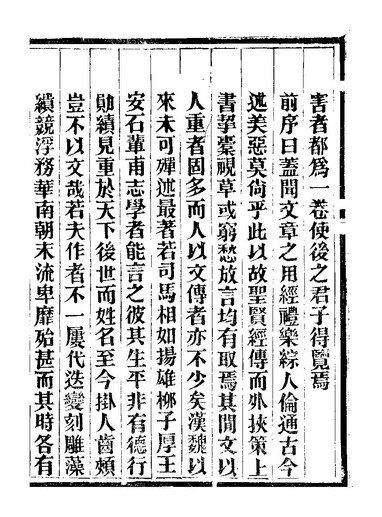 害者都爲一卷使後之君子得覽焉
前序曰蓋聞文章之用經禮樂綜人倫通古今
述美惡莫尚乎此以故聖賢經傳而外挾策上
書挈橐視草或窮愁放言均有取焉其閒文以
人重者固多而人以文傳者亦不少矣漢魏以
來未可殫述最著若司馬相如揚雄桺子厚王
安石輩甫志學者能言之彼其生平非有德行
勛績見重於天下後世而姓名至今掛人齒頰
豈不以文哉若夫作者不一屢代迭變刻雕藻
繢競浮務華南朝末流卑靡殆甚而其時各有